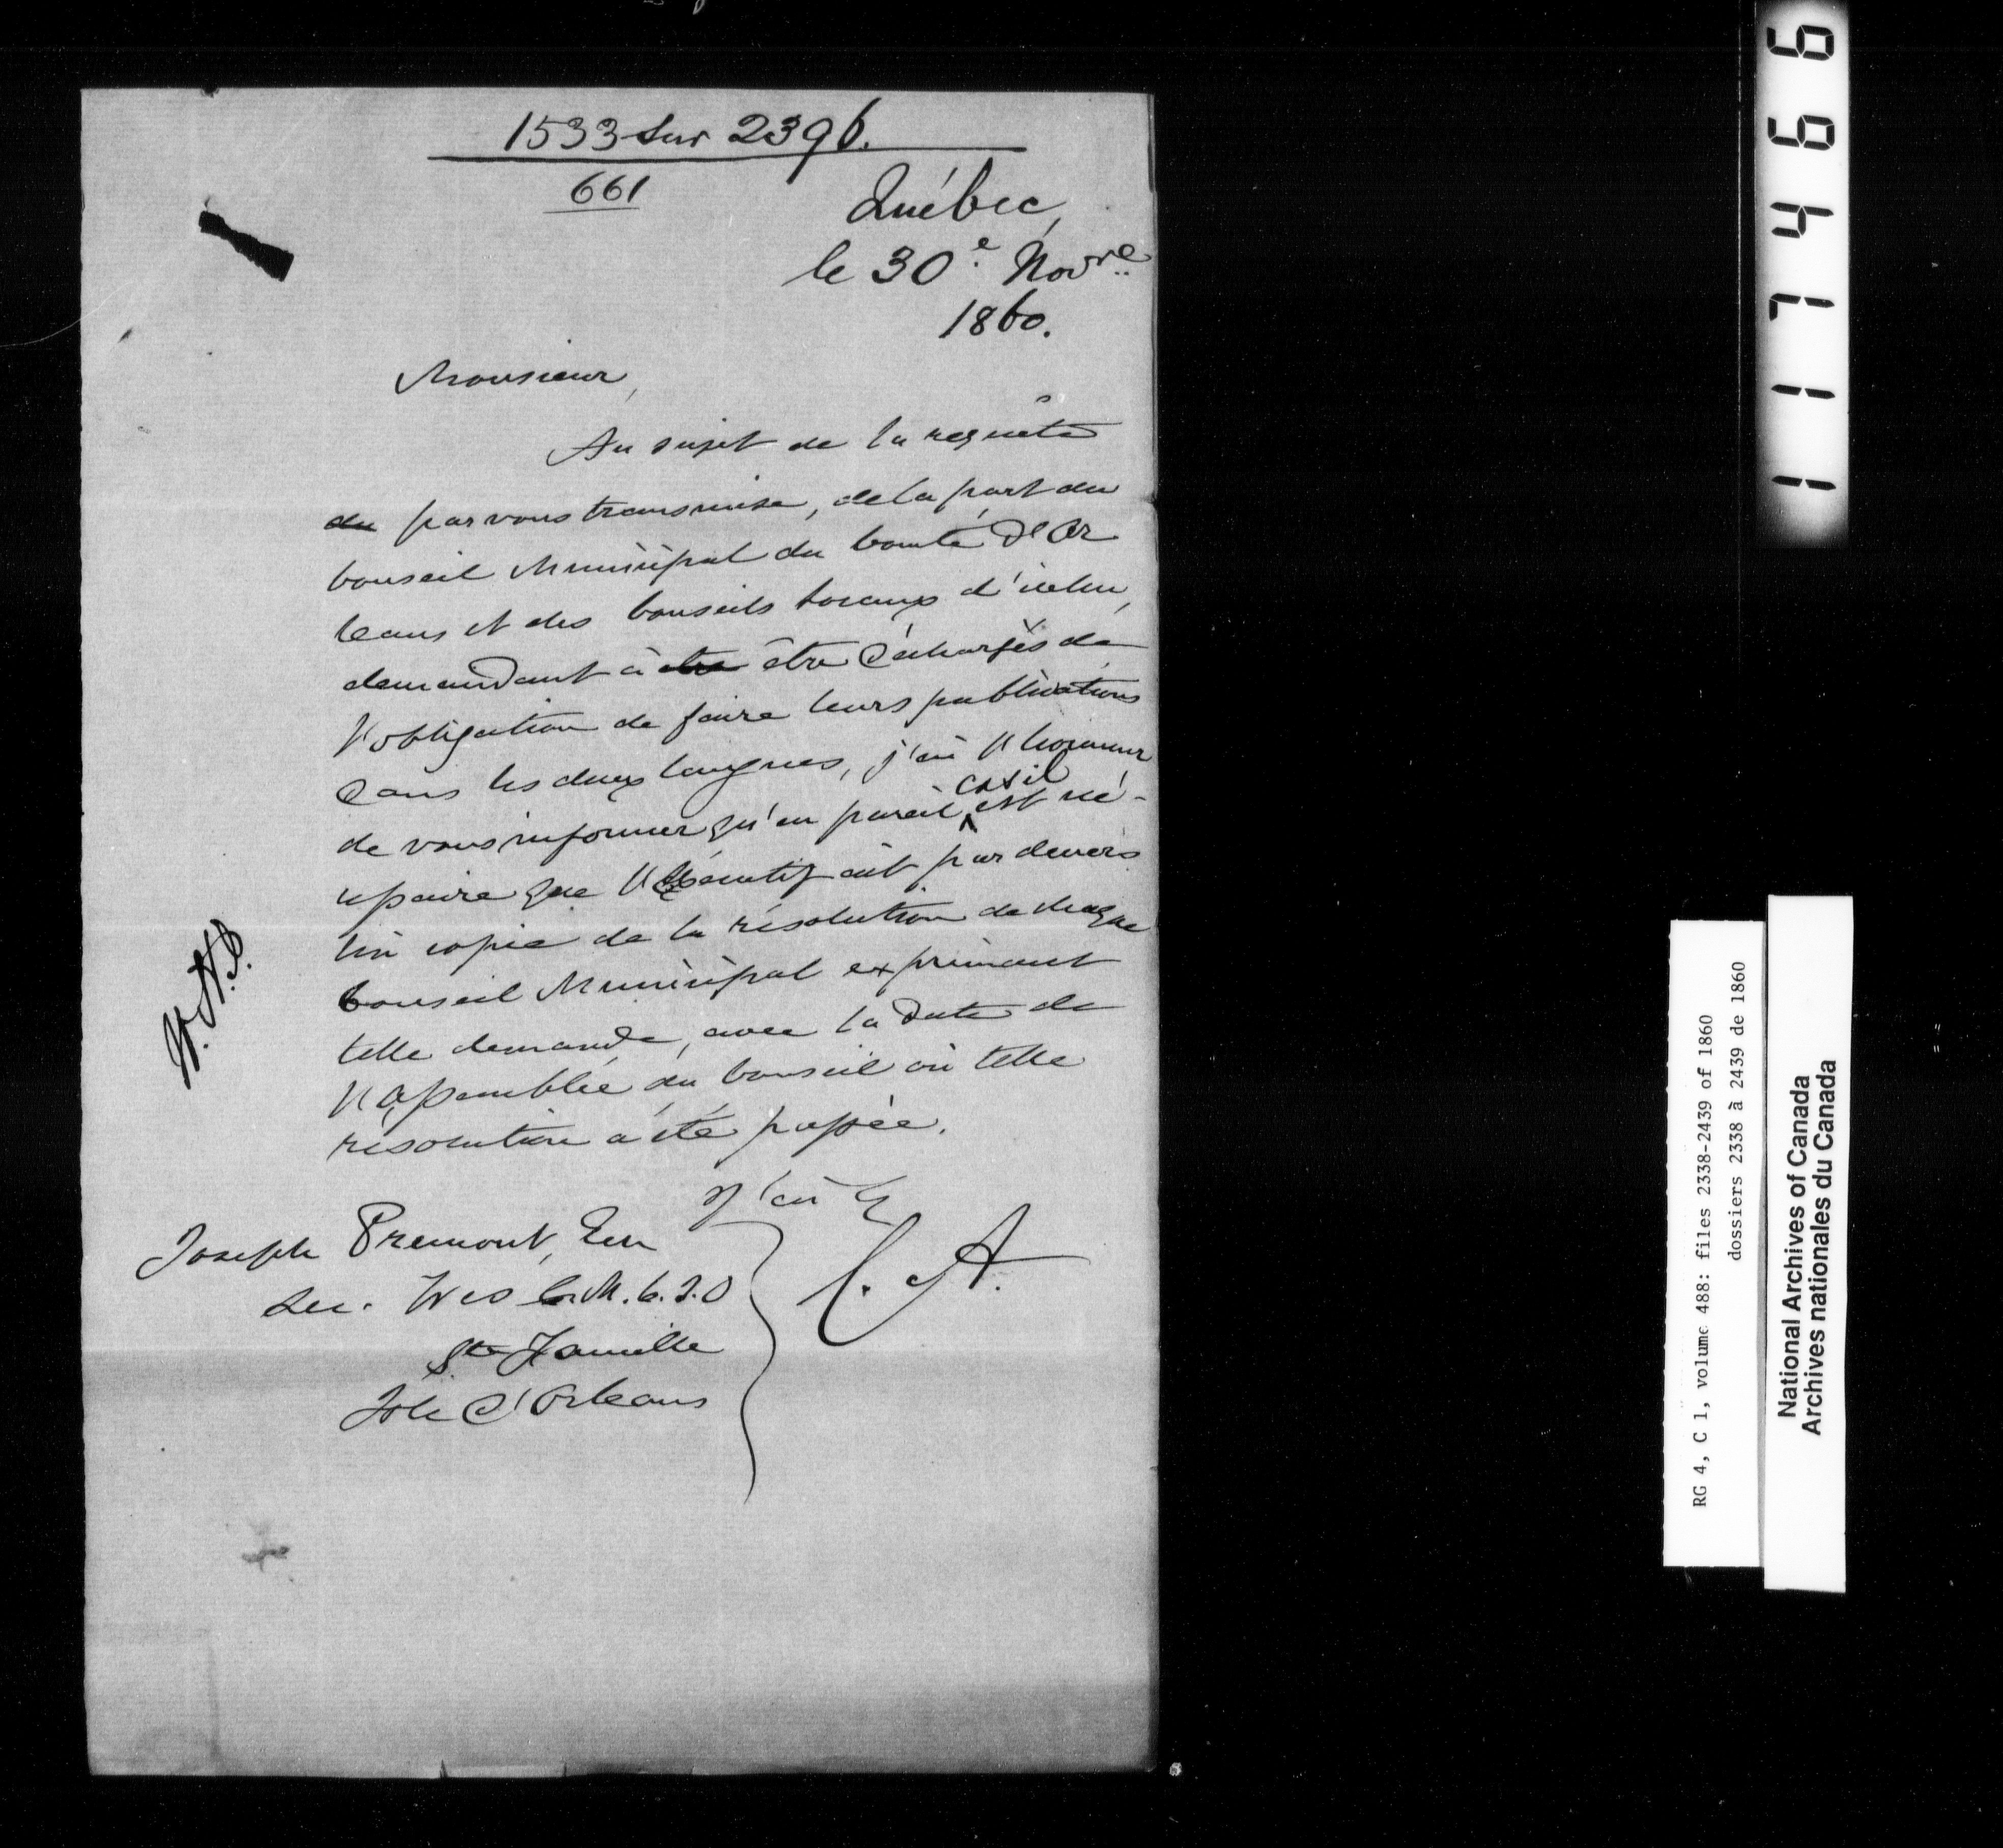 1533 sur 2396.
661
Québec,
le 30e Novre
1860.
Monsieur,
Au sujet de la requête
du par vous transmise, de la part du
Conseil Municipal du Comté d'Or
leans et des Conseils locaux d'icelui,
demandant à être être déchargés de
l'obligation de faire leurs publications
dans les deux langues, j'ai l'honneur
de vous informer qu'en pareil cas il est né-
cessaire que l'Exécutif ait par devers
lui copie de la résolution de chaque
Conseil Municipal exprimant
telle demande, avec la date de
l'assemblée du Conseil où telle
résolution a été passée.
J'ai &
Joseph Premont, Ecr
Sec. Tres C. M. C. I. O
Ste Famille
Isle d'Orleans
C. A.
1117466
RG 4, C 1, volume 488: files 2338-2439 of 1860
dossiers 2338 à 2439 de 1860
National Archives of Canada
Archives nationales du Canada